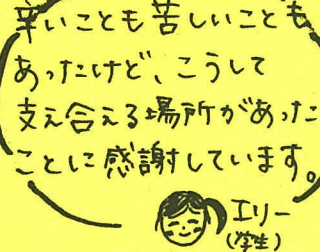 辛いことも苦しいことも
あったけど、こうして
支え合える場所があった
ことに感謝しています。
エリー
(学生)